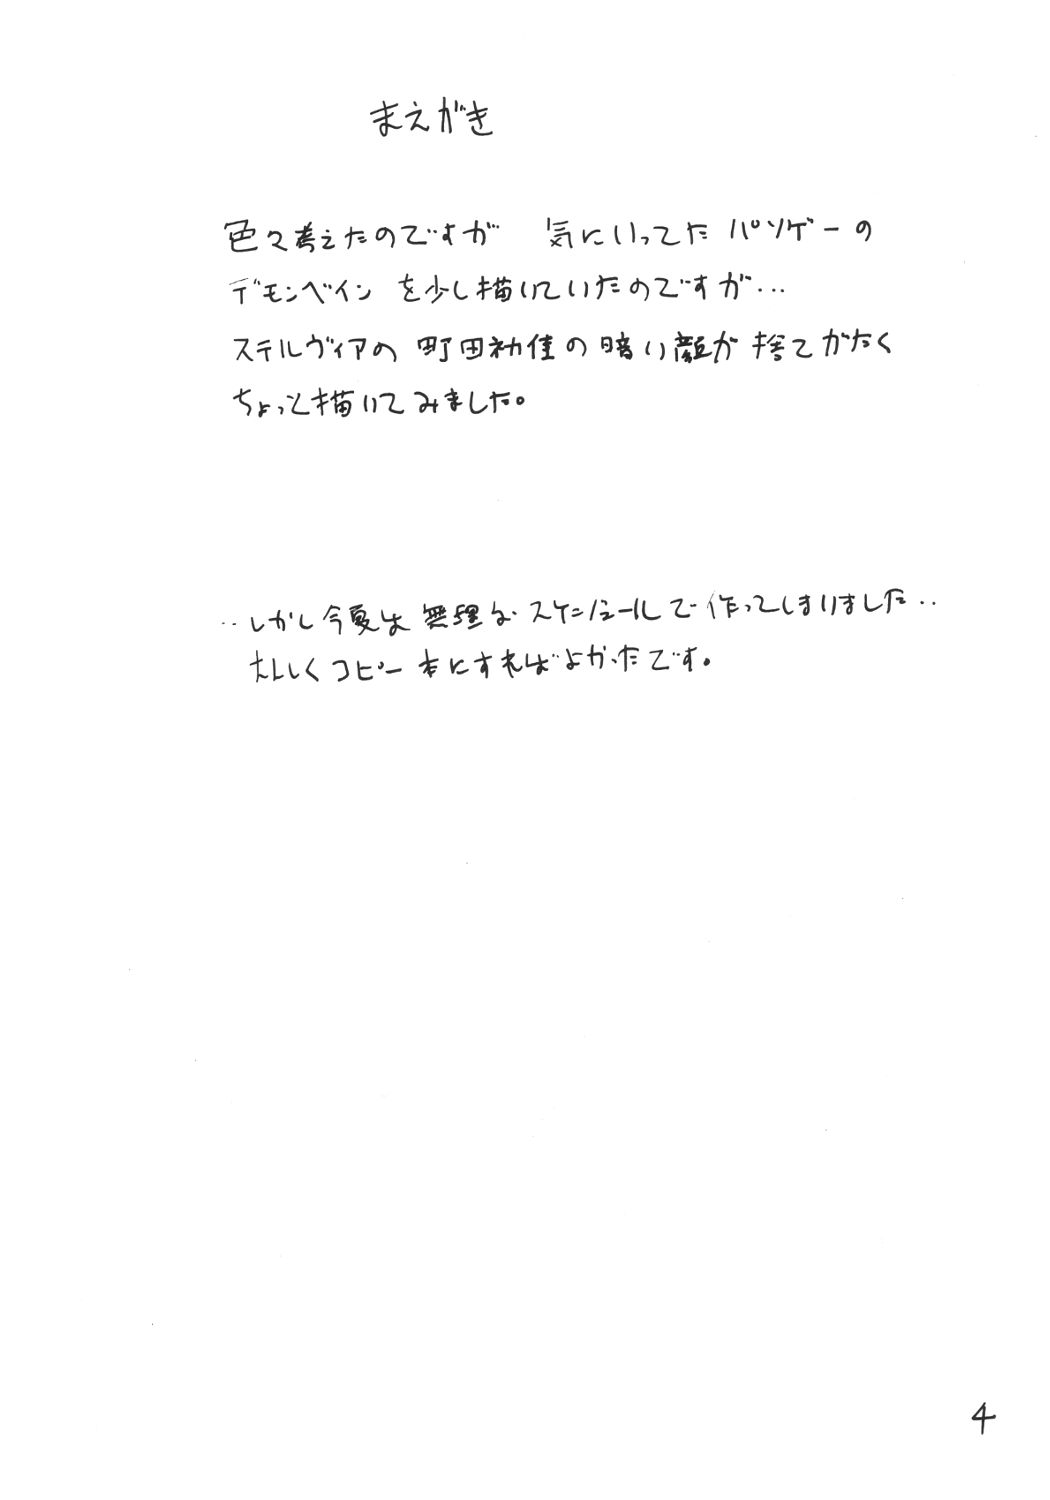 まえがき
色々考えたのですが 気にいってた パソゲーの
デモンベイン を少し描いていたのですが...
ステルヴィアの 町田初佳の暗い顔が 捨てがたく
ちょっと描いてみました。
‥しかし今夏は 無理な スケジュールで 作ってしまいました‥
大人しくコピー本にすればよかったです。
4